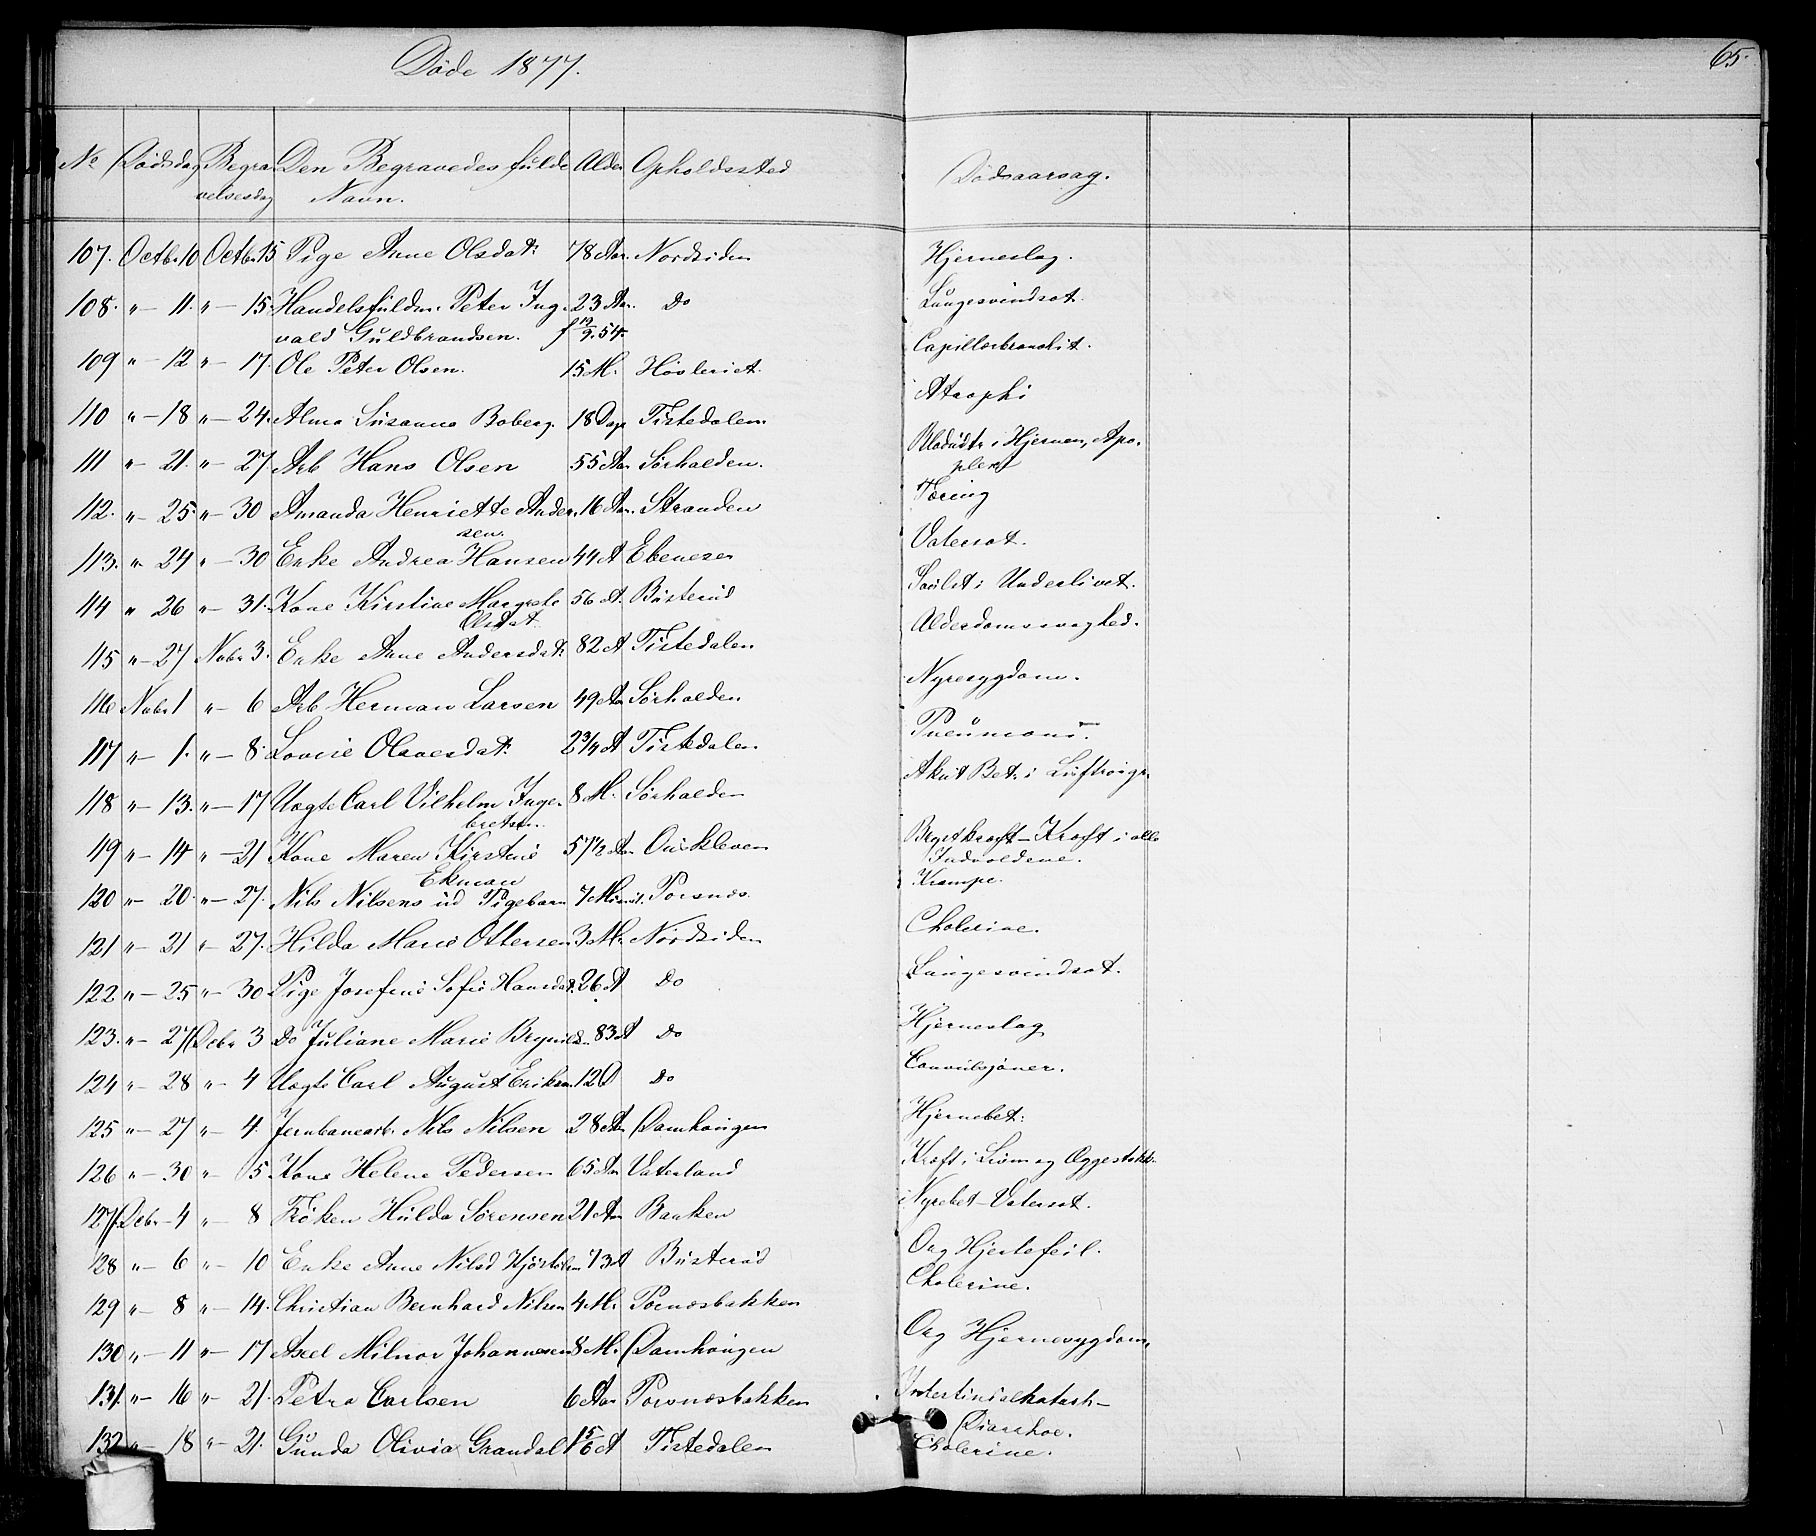 Døde 1877.
65.
No Dødsdag Begra Den Begravedes fulde Alder Opholdssted Dødsaarsag.
velsesdag Navn.
107. Octbr 10 Octbr 15 Pige Anne Olsdatr 78 Aar. Nordsiden Hjerneslag.
108. " - 11. " - 15. Handelsfuldm. Peter Ing 23 Aar. Do Lungesvindsot.
vald Guldbrandsen. f 19/9 54.
109 " - 12 " - 17. Ole Peter Olsen. 15 M. Høvleriet. Capillærbronchit.
110 " - 18 " - 24. Alma Susanna Boberg. 18 Dage Tistedalen. Atrophi
111 " - 21. " - 27. Arb Hans Olsen 55 Aar Sørhalden. Blodudtr i Hjernen, Apo-
plexi
112. " - 25. " - 30 Amanda Henriette Ander- 16 Aar. Stranden Tæring
sen.
113. " - 24 " - 30 Enke Andrea Hansen 44 A Ebeneser Vatersot.
114 " 26 " - 31. Kone Kirstine Margrete 56 A. Busterud Svulst i Underlivet.
Olsdat.
115 " - 27 Nvbr 3. Enke Anne Andersdatr 82 A Tistedalen Alderdomssvaghed.
116 Nvbr 1 " - 6 Arb Herman Larsen 49 Aar Sørhalden Nyresygdom.
117 " - 1. " - 8. Lovise Olavesdatr 2 3/4 A Tistedalen. Pneumoni.
118 " - 13. " - 17 Uægte Carl Vilhelm Inge- 8 M. Sørhalden Akut Bet. i Luftveige.
bretsen.
119 " - 14 " - 21 Kone Maren Kirstine 57 1/2 Aar Oudskleven Brystkræft - Kræft i alle
Ekman Indvoldene.
120 " - 20. " - 27. Nils Nilsens ud Pigebarn 7 Minut. Porsnæs. Krampe.
121 " - 21 " - 27. Hilda Marie Ottersen 3 M. Nordsiden Cholerine.
122 " - 25 " - 30 Pige Josefine Sofie Hansdat. 26 A Do Lungesvindsot.
123. " - 27 Debr 3 Do Juliane Marie Brynildsn 83 A Do Hjerneslag
124 " - 28 " - 4 Uægte Carl August Eriksen 12 D Do Convulsjoner.
125 " - 27 " - 4. Jernbanearb. Nils Nilsen 28 Aar Damhaugen Hjernebet:
126 " - 30 " - 5 Kone Helene Pedersen 65 Aar Vaterland Kræft i Livm og Æggestokk.
127 Debr - 4 " - 8 Frøken Hulda Sørensen 21 Aar Banken Nyrebet - Vatersot.
128 " - 6 " - 10 Enke Anne Nilsd 73 A Busterud Org Hjertefeil.
129 " - 8 " - 14. Christian Bernhard Nilsen 4 M. Porsnæsbakken Cholerine.
130 " - 11 " - 17 Axel Milnor Johannesen 8 M. Damhaugen Org Hjernesygdom,
131. " - 16 " - 21. Petra Carlsen 6 Aar Porsnæsbakken Intestinalkatarh -
Diarrhoe.
132 " - 18 " - 21. Gunda Olivia Grandal 1 5/6 A Tistedalen Cholerine.